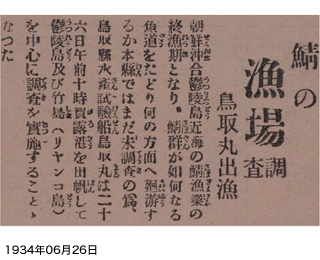 鯖の
漁場調査
鳥取丸出漁
朝鮮沖合欝陵島近海の鯖漁業の
終漁期となり、鯖群が如何なる
魚道をたどり何の方面へ廻游す
るか本縣ではまだ未調査の爲、
鳥取縣水産試驗船鳥取丸は二十
六日午前十時賀露港を出帆して
欝陵島及び竹島（リヤンコ島）
を中心に調査を實施することゝ
なつた
1934年06月26日